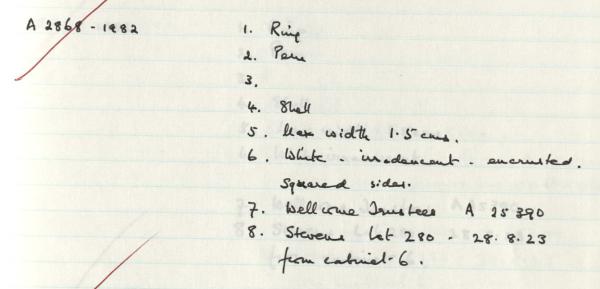 A 2868 - 1982
1. Ring
2. Peru
3.
4. Shell
5. Max width 1.5 cms.
6. White - irredencent - encrusted.
Squared sides.
7. Wellcome Trustees A 25390
8. Stevens Lot 280 - 28.8.23
from cabinet 6.